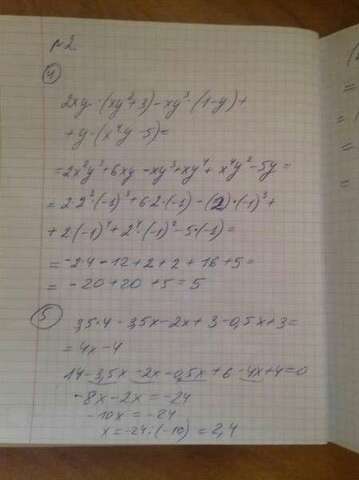 №2.
④
2xy·(xy²+3)-xy³·(1-y)+
+y·(x⁴y-5)=
=2x²y³+6xy-xy³+xy⁴+x⁴y²-5y=
=2·2²·(-1)³+6·2·(-1)-(2)·(-1)³+
+2(-1)⁴+2⁴·(-1)²-5·(-1)=
=-24-12+2+2+16+5=
=-20+20+5=5
⑤
3,5·4-3,5x-2x+3-0,5x+3=
=4x-4
14-3,5x-2x-0,5x+6-4x+4=0
-8x-2x=-24
-10x=-24
x=-24:(-10)=2,4